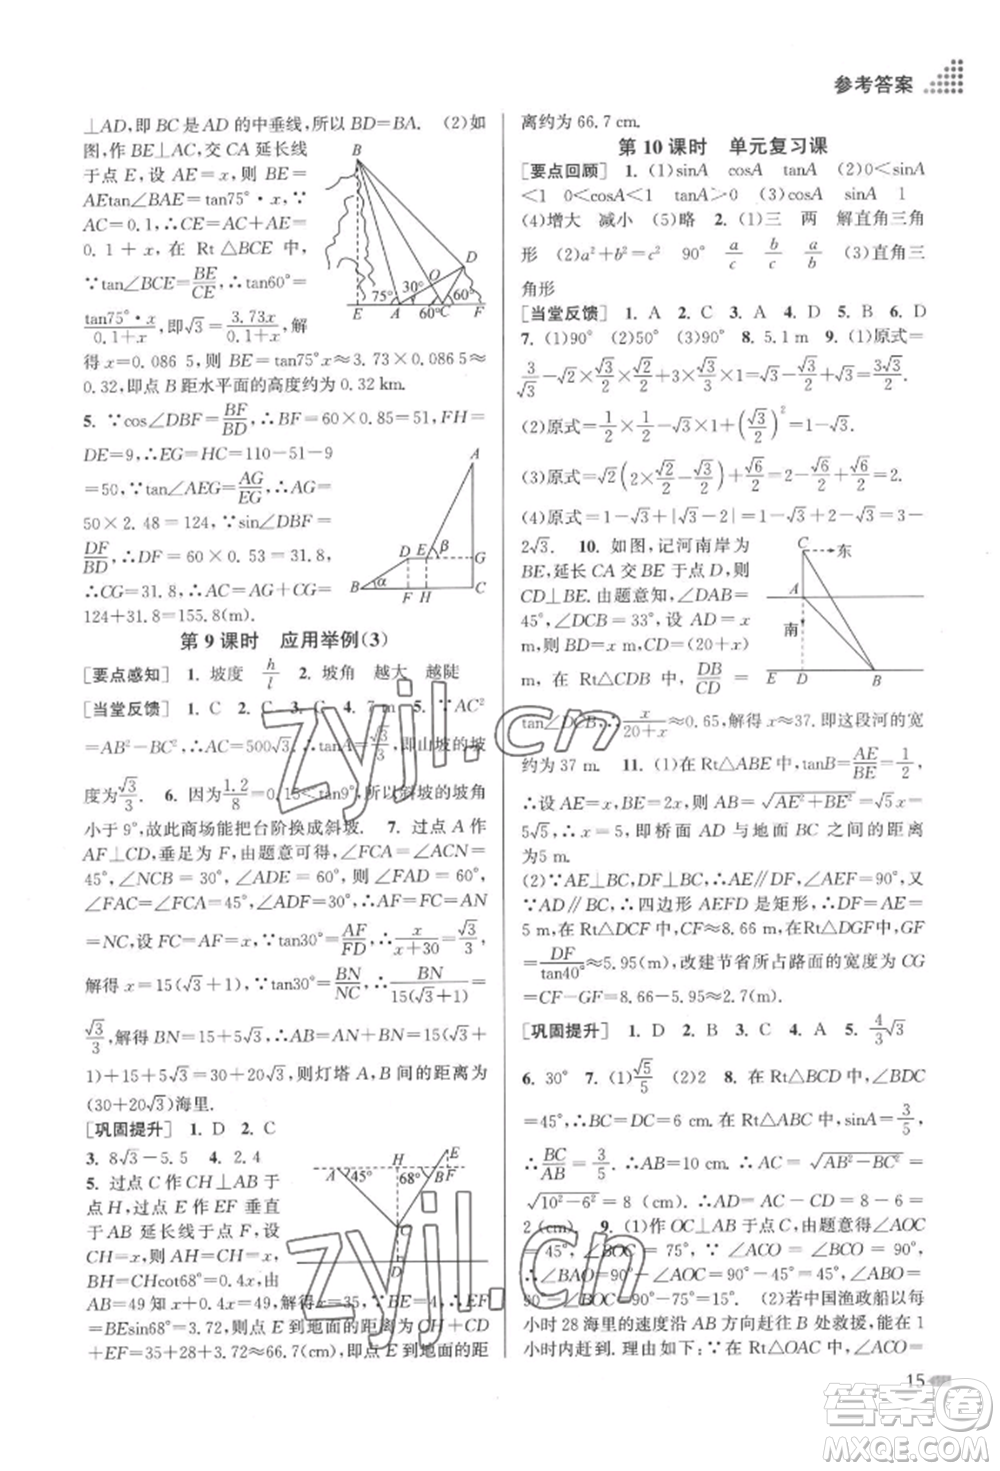 参考答案
⊥AD,即 BC 是 AD 的中垂线,所以 BD=BA. (2)如
图,作 BE⊥AC,交 CA 延长线
于点 E,设 AE=x,则 BE=
AEtan∠BAE=tan75°·x,∵
AC=0.1,∴CE=AC+AE=
0.1+x,在 Rt△BCE 中,
∵tan∠BCE=BE/CE,∴tan60°=
(tan75°·x)/(0.1+x),即√3=3.73x/(0.1+x),解
得 x=0.086 5,则 BE=tan75°x≈3.73×0.086 5≈
0.32,即点 B 距水平面的高度约为 0.32 km.
B
D
O
30°
75°
60°
60°
E A C F
5. ∵cos∠DBF=BF/BD,∴BF=60×0.85=51,FH=
DE=9,∴EG=HC=110-51-9
=50,∵tan∠AEG=AG/EG,∴AG=
50×2.48=124,∵sin∠DBF=
DF/BD,∴DF=60×0.53=31.8,
∴CG=31.8,∴AC=AG+CG=
124+31.8=155.8(m).
A
D E β G
B α F H C
第 9 课时 应用举例(3)
[要点感知] 1. 坡度 h/l 2. 坡角 越大 越陡
[当堂反馈] 1. C 2. C 3. C 4. 7 m 5. ∵AC²
=AB²-BC²,∴AC=500√3,∴tanA=√3/3,即山坡的坡
度为√3/3. 6. 因为1.2/8=0.15<tan9°,所以斜坡的坡角
小于 9°,故此商场能把台阶换成斜坡. 7. 过点 A 作
AF⊥CD,垂足为 F,由题意可得,∠FCA=∠ACN=
45°,∠NCB=30°,∠ADE=60°,∴∠FAD=60°,
∴∠FAC=∠FCA=45°,∠FDA=30°,∴AF=FC=AN
=NC,设 FC=AF=x,∵tan30°=AF/FD,∴x/(x+30)=√3/3,
解得 x=15(√3+1),∵tan30°=BN/NC,∴BN/(15(√3+1))=
√3/3,解得 BN=15+5√3,∴AB=AN+BN=15(√3
+1)+15+5√3=30+20√3,则灯塔 A、B 间的距离为
(30+20√3)海里.
[巩固提升] 1. D 2. C
3. 8√3-5.5 4. 2.4
5. 过点 C 作 CH⊥AB 于
点 H,过点 E 作 EF 垂直
于 AB 延长线于点 F,设
CH=x,则 AH=CH=x,
BH=CHcot68°=0.4x,由
AB=49 知 x+0.4x=49,解得 x=35,∵BE=4,∴EF
=BEsin68°=3.72,则点 E 到地面的距离为 CH+CD
+EF=35+28+3.72≈66.7(cm),即点 E 到地面的距
H E
A 45° 68° B F
C
D
离约为 66.7 cm.
第 10 课时 单元复习课
[要点回顾] 1. (1)sinA cosA tanA (2)0<sinA
<1 0<cosA<1 tanA>0 (3)cosA sinA 1
(4)增大 减小 (5)略 2. (1)三 两 解直角三角
形 (2)a²+b²=c² 90° a/c b/c a/b (3)直角三
角形
[当堂反馈] 1. A 2. C 3. A 4. A 5. B 6. D
7. (1)90° (2)50° (3)90° 8. 5.1 m 9. (1)原式=
3/√3-√2×√2/2+3×√3/3=√3-1+√3=2√3-1.
(2)原式=1/2×1/2-√3×1+(√3/2)²=1-√3.
(3)原式=√2(2×√3/2-√2/2)+√6/2=√6/2-1+√6/2=√6-1.
(4)原式=1-√3+|√3-2|=1-√3+2-√3=3-
2√3. 10. 如图,记河南岸为
BE,延长 CA 交 BE 于点 D,则
CD⊥BE. 由题意知,∠DAB=
45°,∠DCB=33°,设 AD=x
m,则 BD=x m,CD=(20+x)
m,在 Rt△CDB 中,DB/CD=
tan∠DCB,∴x/(20+x)≈0.65,解得 x≈37. 即这段河的宽
约为 37 m. 11. (1)在 Rt△ABE 中,tanB=AE/BE=1/2,
∴设 AE=x,BE=2x,∴AB=√(AE²+BE²)=√5x=
5√5,∴x=5,∴AE=5,即桥面 AD 与地面 BC 之间的距离
为5 m.
(2)∵AE⊥BC,DF⊥BC,∴AE∥DF,∠AEF=90°,又
∵AD∥BC,∴四边形 AEFD 是矩形,∴DF=AE=
5 m,在 Rt△DCF 中,CF=8.66 m,在 Rt△DGF 中,GF
=DF/tan40°≈5.95(m),改建节省所占路面的宽度为 CG
=CF-GF=8.66-5.95≈2.7(m).
C 东
A
南
E D B
[巩固提升] 1. D 2. B 3. C 4. A 5. 4/3√3
6. 30° 7. (1)√5/5 (2)2 8. 在 Rt△BCD 中,∠BDC
=45°,∴BC=DC=6 cm. 在 Rt△ABC 中,sinA=3/5,
∴BC/AB=3/5,∴AB=10(cm).∴AC=√(AB²-BC²)=
√(10²-6²)=8(cm).∴AD=AC-CD=8-6=
2(cm). 9. (1)作 OC⊥AB 于点 C,由题意可得,∠AOC
=45°,∠BOC=75°,∵∠ACO=∠BCO=90°,
∴∠BAO=90°-∠AOC=90°-45°=45°,∠B=
90°-∠BOC=90°-75°=15°. (2)若中国渔政船以每
小时 28 海里的速度沿 AB 方向赶往 B 处救援,能在 1
小时内赶到. 理由如下:在 Rt△OAC 中,∠ACO=
15
zyjl.cn
zyjl.cn
答案圈
MXQE.COM